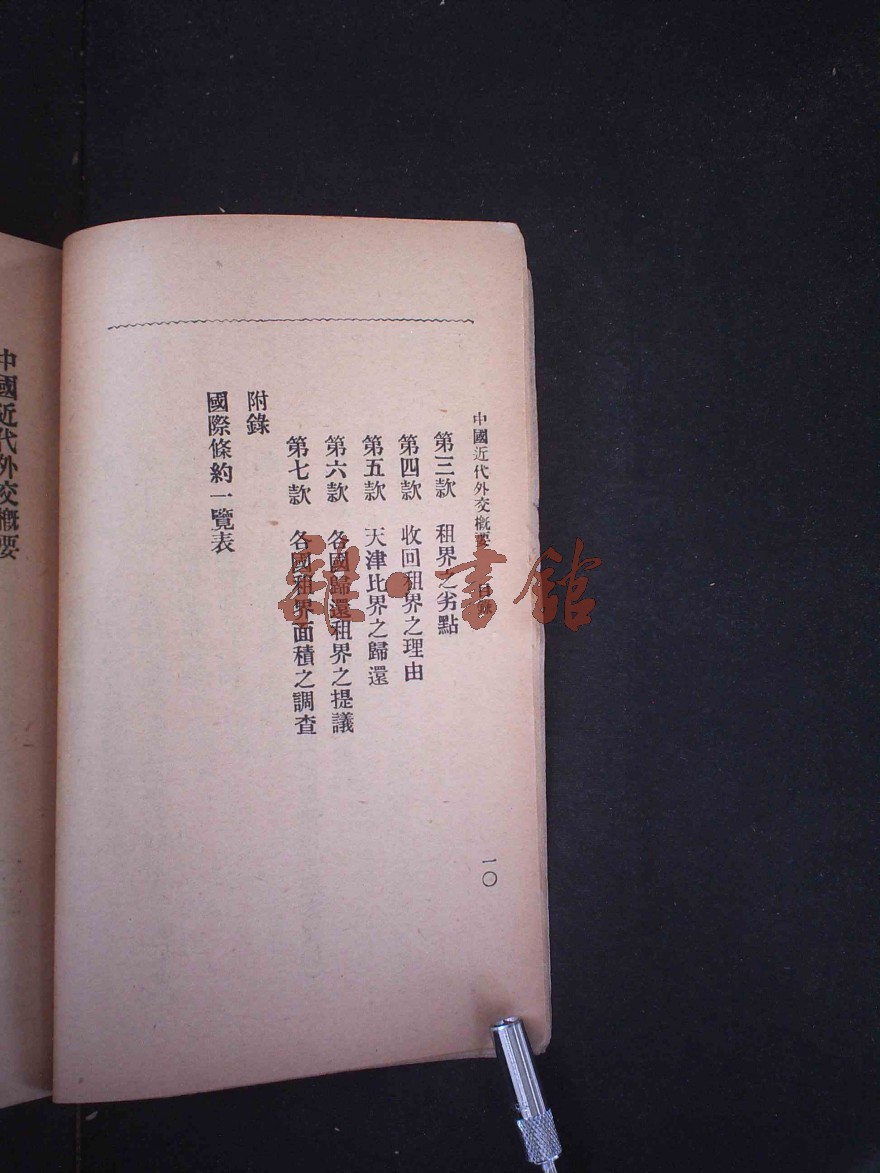 中國近代外交概要　目錄
第三款　租界之劣點
第四款　收回租界之理由
第五款　天津比界之歸還
第六款　各國歸還租界之提議
第七款　各國租界面積之調查
附錄
國際條約一覽表
一〇
中國近代外交概要
書館